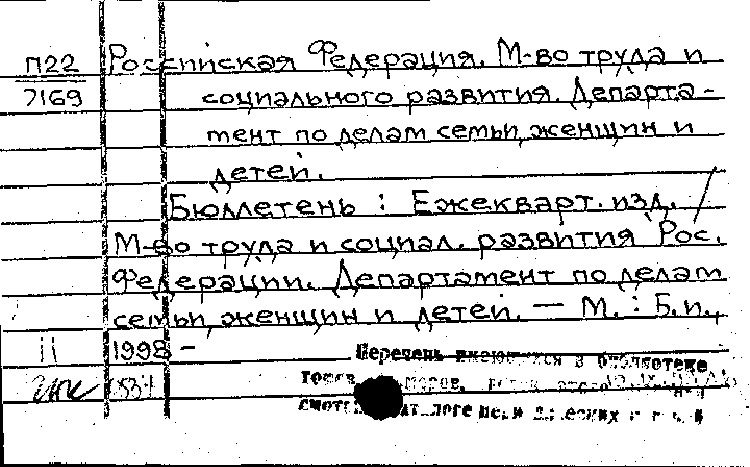 П22 Российская Федерация. М-во труда и
7169 социального развития. Департа-
мент по делам семьи, женщин и
детей.
Бюллетень : Ежекварт. изд. /
М-во труда и социал. развития Рос.
Федерации. Департамент по делам
семьи, женщин и детей. — М. : Б.и.,
1998 -
Перечень имеющихся в библиотеке